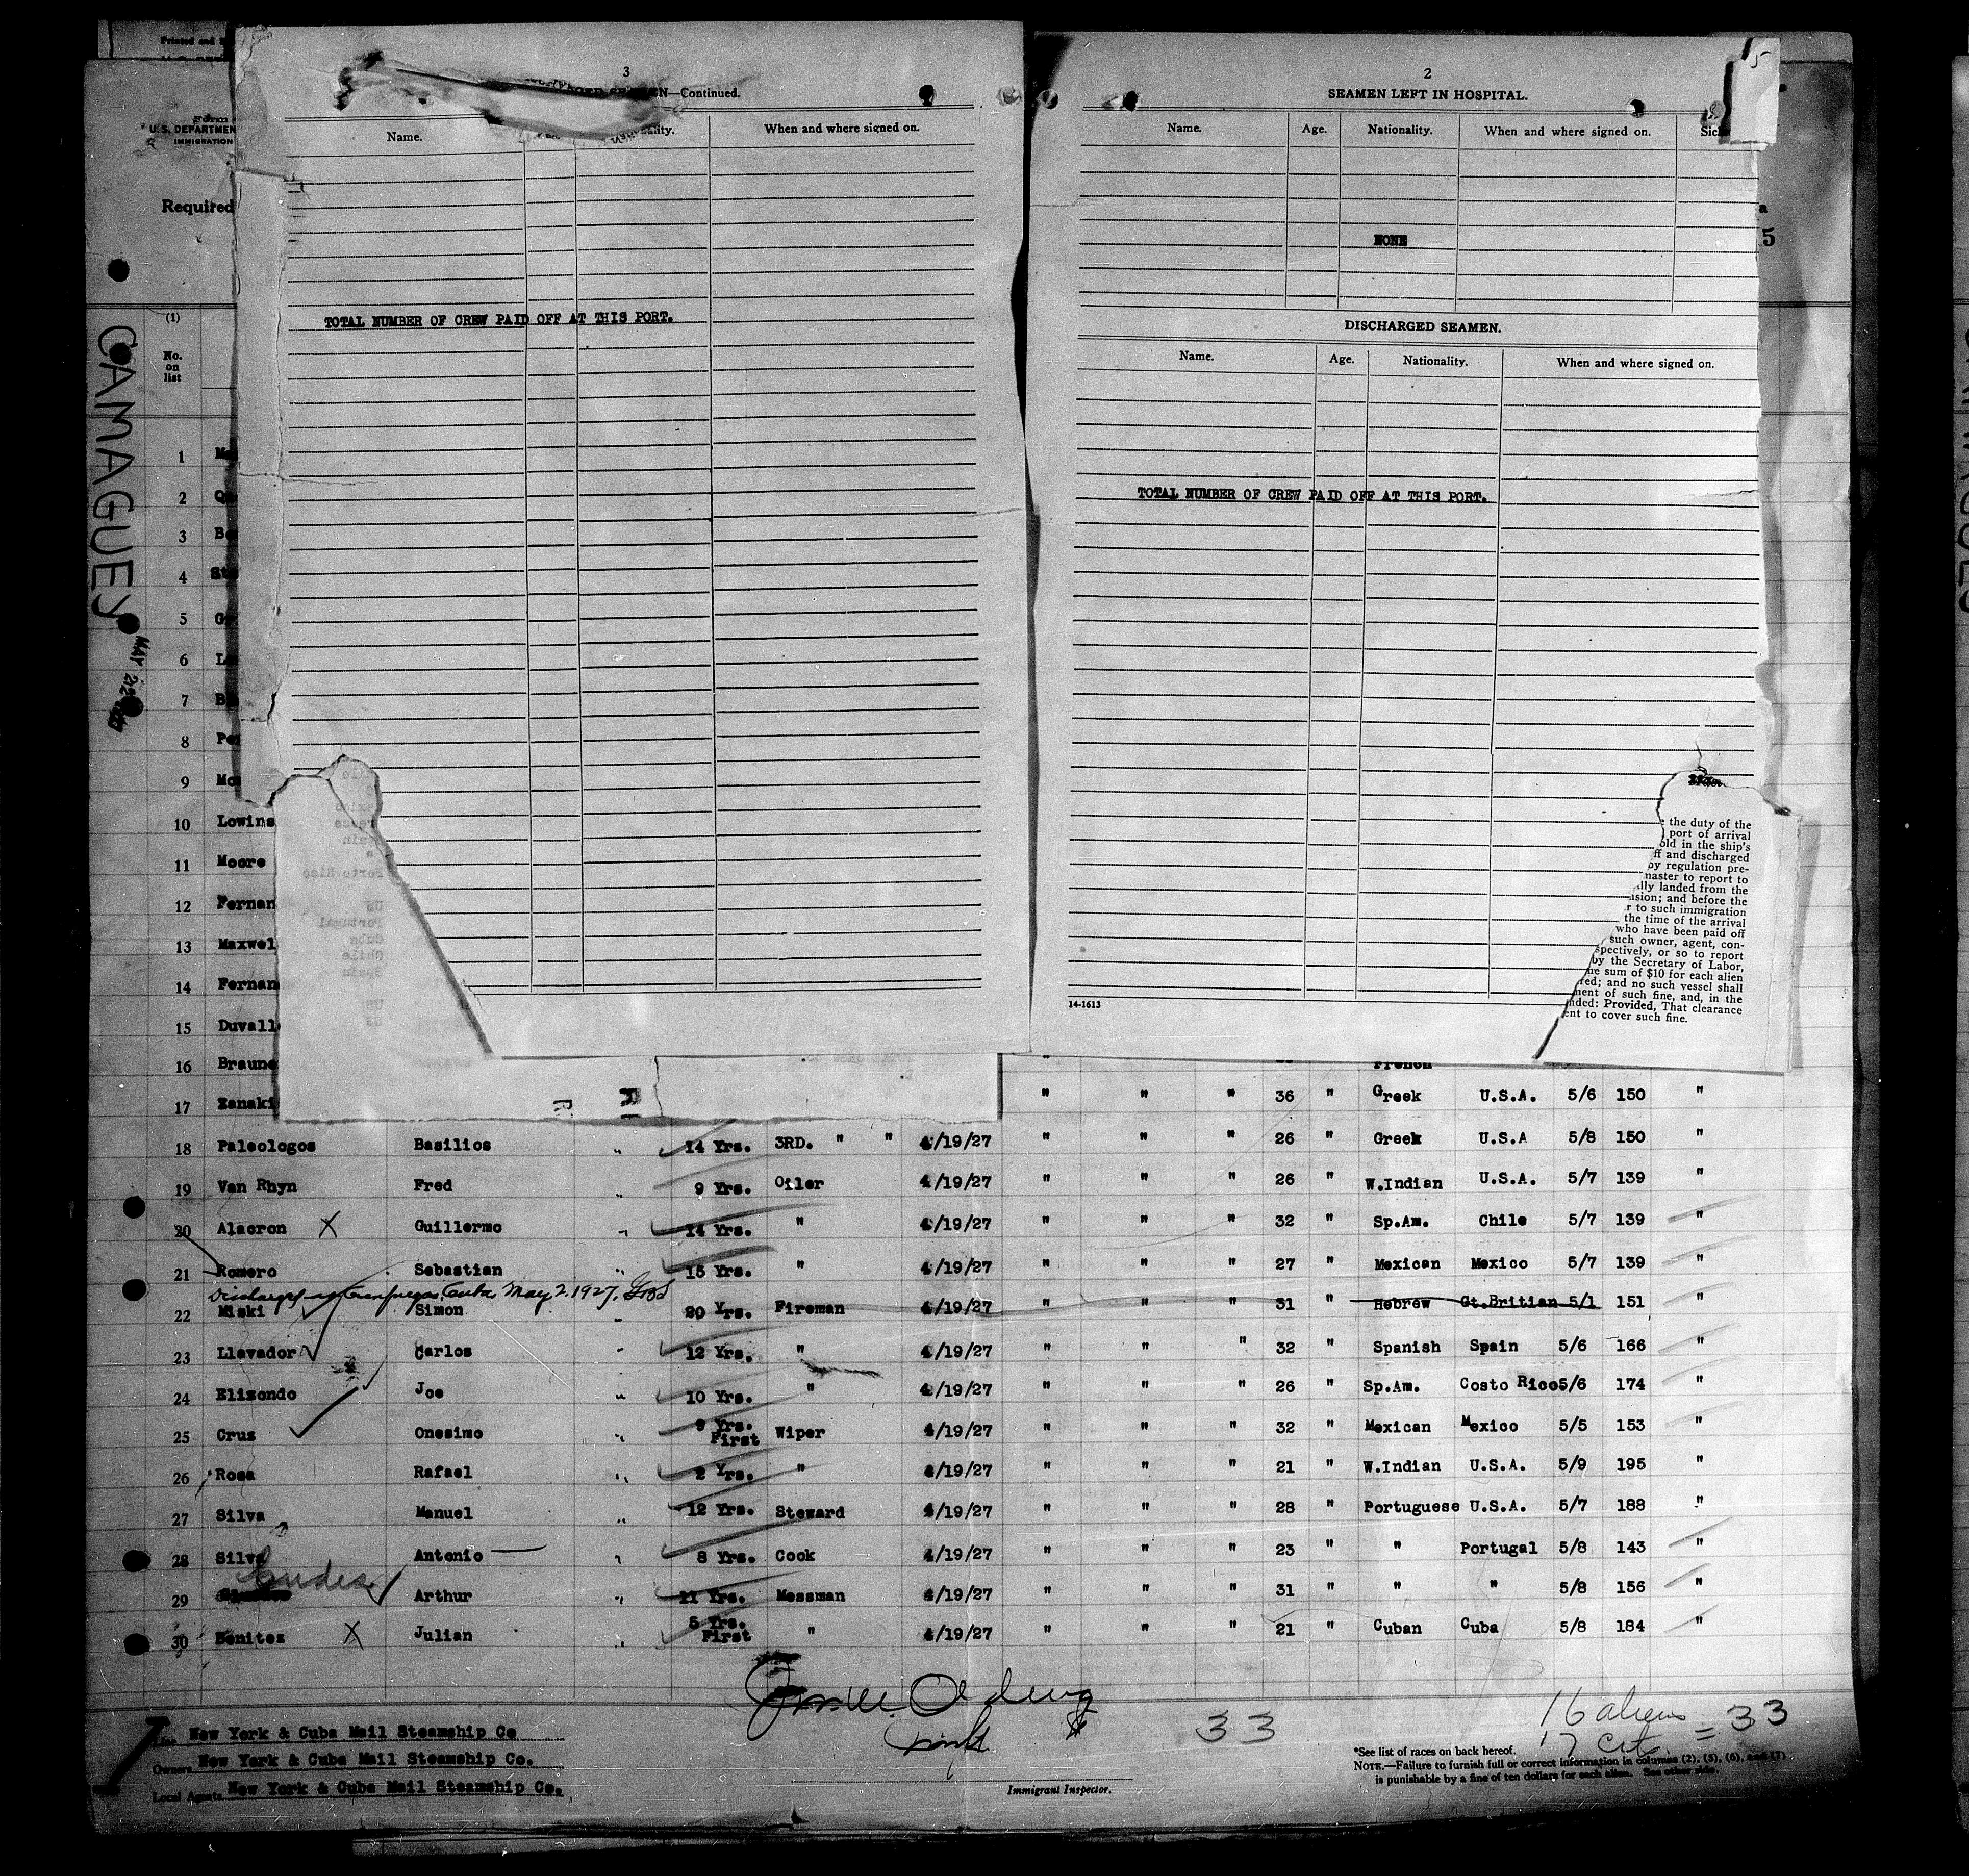 Printed and
Form
U.S. DEPARTMEN
IMMIGRATION
Required
3
SEAMEN—Continued.
Name.
When and where signed on.
TOTAL NUMBER OF CREW PAID OFF AT THIS PORT.
2
SEAMEN LEFT IN HOSPITAL.
Name. Age. Nationality. When and where signed on.
NONE
DISCHARGED SEAMEN.
Name. Age. Nationality. When and where signed on.
TOTAL NUMBER OF CREW PAID OFF AT THIS PORT.
14-1613
5
5
the duty of the
port of arrival
old in the ship's
ff and discharged
by regulation pre-
master to report to
lly landed from the
sion; and before the
r to such immigration
the time of the arrival
who have been paid off
such owner, agent, con-
spectively, or so to report
by the Secretary of Labor,
ne sum of $10 for each alien
red; and no such vessel shall
ment of such fine, and, in the
nded: Provided, That clearance
ent to cover such fine.
CAMAGUEY
MAY 2
(1)
No.
on
list
1
2
3
4
5
6
7
8
9
10 Lowins
11 Moore
12 Fernan
13 Maxwel
14 Fernan
15 Duvall
16 Braune French
17 Zanaki " " " 36 " Greek U.S.A. 5/6 150 "
18 Paleologos Basilios " 14 Yrs. 3RD. " " 4/19/27 " " " 26 " Greek U.S.A 5/8 150 "
19 Van Rhyn Fred " 9 Yrs. Oiler 4/19/27 " " " 26 " W.Indian U.S.A. 5/7 139 "
20 Alacron X Guillermo " 14 Yrs. " 4/19/27 " " " 32 " Sp.Am. Chile 5/7 139 "
21 Romero Sebastian " 15 Yrs. " 4/19/27 " " " 27 " Mexican Mexico 5/7 139 "
Discharged at Cienfuegos, Cuba, May 2, 1927.
22 Miski Simon " 20 Yrs. Fireman 4/19/27 " " " 31 " Hebrew Gt.Britian 5/1 151 "
23 Llavador Carlos " 12 Yrs. " 4/19/27 " " " 32 " Spanish Spain 5/6 166 "
24 Elizondo Joe " 10 Yrs. " 4/19/27 " " " 26 " Sp.Am. Costo Rico 5/6 174 "
25 Cruz Onesimo " 9 Yrs. First Wiper 4/19/27 " " " 32 " Mexican Mexico 5/5 153 "
26 Rosa Rafael " 2 Yrs. " 4/19/27 " " " 21 " W.Indian U.S.A. 5/9 195 "
27 Silva Manuel " 12 Yrs. Steward 4/19/27 " " " 28 " Portuguese U.S.A. 5/7 188 "
28 Silva Antonio " 8 Yrs. Cook 4/19/27 " " " 23 " " Portugal 5/8 143 "
29 Arthur " 11 Yrs. Messman 4/19/27 " " " 31 " " " 5/8 156 "
30 Benitez X Julian " 5 Yrs. First " 4/19/27 " " " 21 " Cuban Cuba 5/8 184 "
33
16 aliens
17 cit. = 33
New York & Cuba Mail Steamship Co
Owners New York & Cuba Mail Steamship Co.
Local Agents New York & Cuba Mail Steamship Co.
Immigrant Inspector.
*See list of races on back hereof.
NOTE.—Failure to furnish full or correct information in columns (2), (5), (6), and (7)
is punishable by a fine of ten dollars for each alien. See other side.